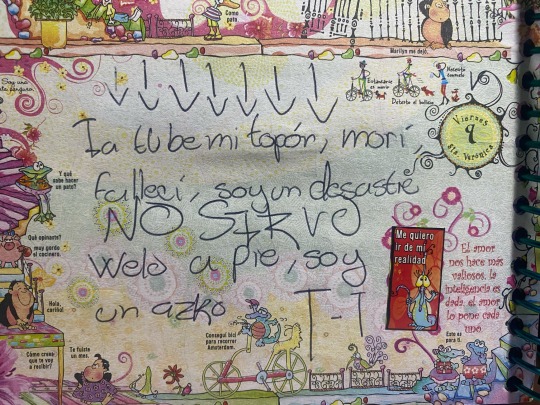 Como pato
Marilyn me dejó.
Soy una
Necesito
Estimularse es morir
Detesto el bullicio
Viernes
9
Sta. Verónica
Ia tube mi topón, mori,
falleci, soy un desastre
NO SIRVO
Welo a pie, soy
un azko T-T
Y qué sabe hacer un pato?
Qué opinaste?
muy gordo el cocinero.
Hola, cariño!
Cómo crees que te voy a recibir?
Te fuiste un mes.
Conseguí bici para recorrer Amsterdam.
Me quiero ir de mi realidad
El amor nos hace más valiosos, la inteligencia es dada, el amor lo pone cada uno.
Esto es para ti.